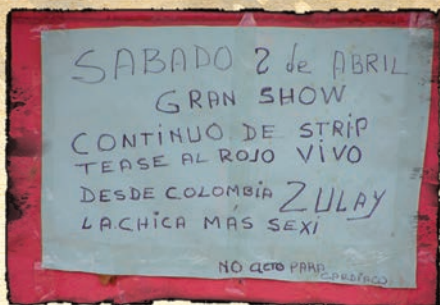 SABADO 2 de ABRIL
GRAN SHOW
CONTINUO DE STRIP
TEASE AL ROJO VIVO
DESDE COLOMBIA ZULAY
LA CHICA MÁS SEXI
NO acto PARA
CARDÍACO